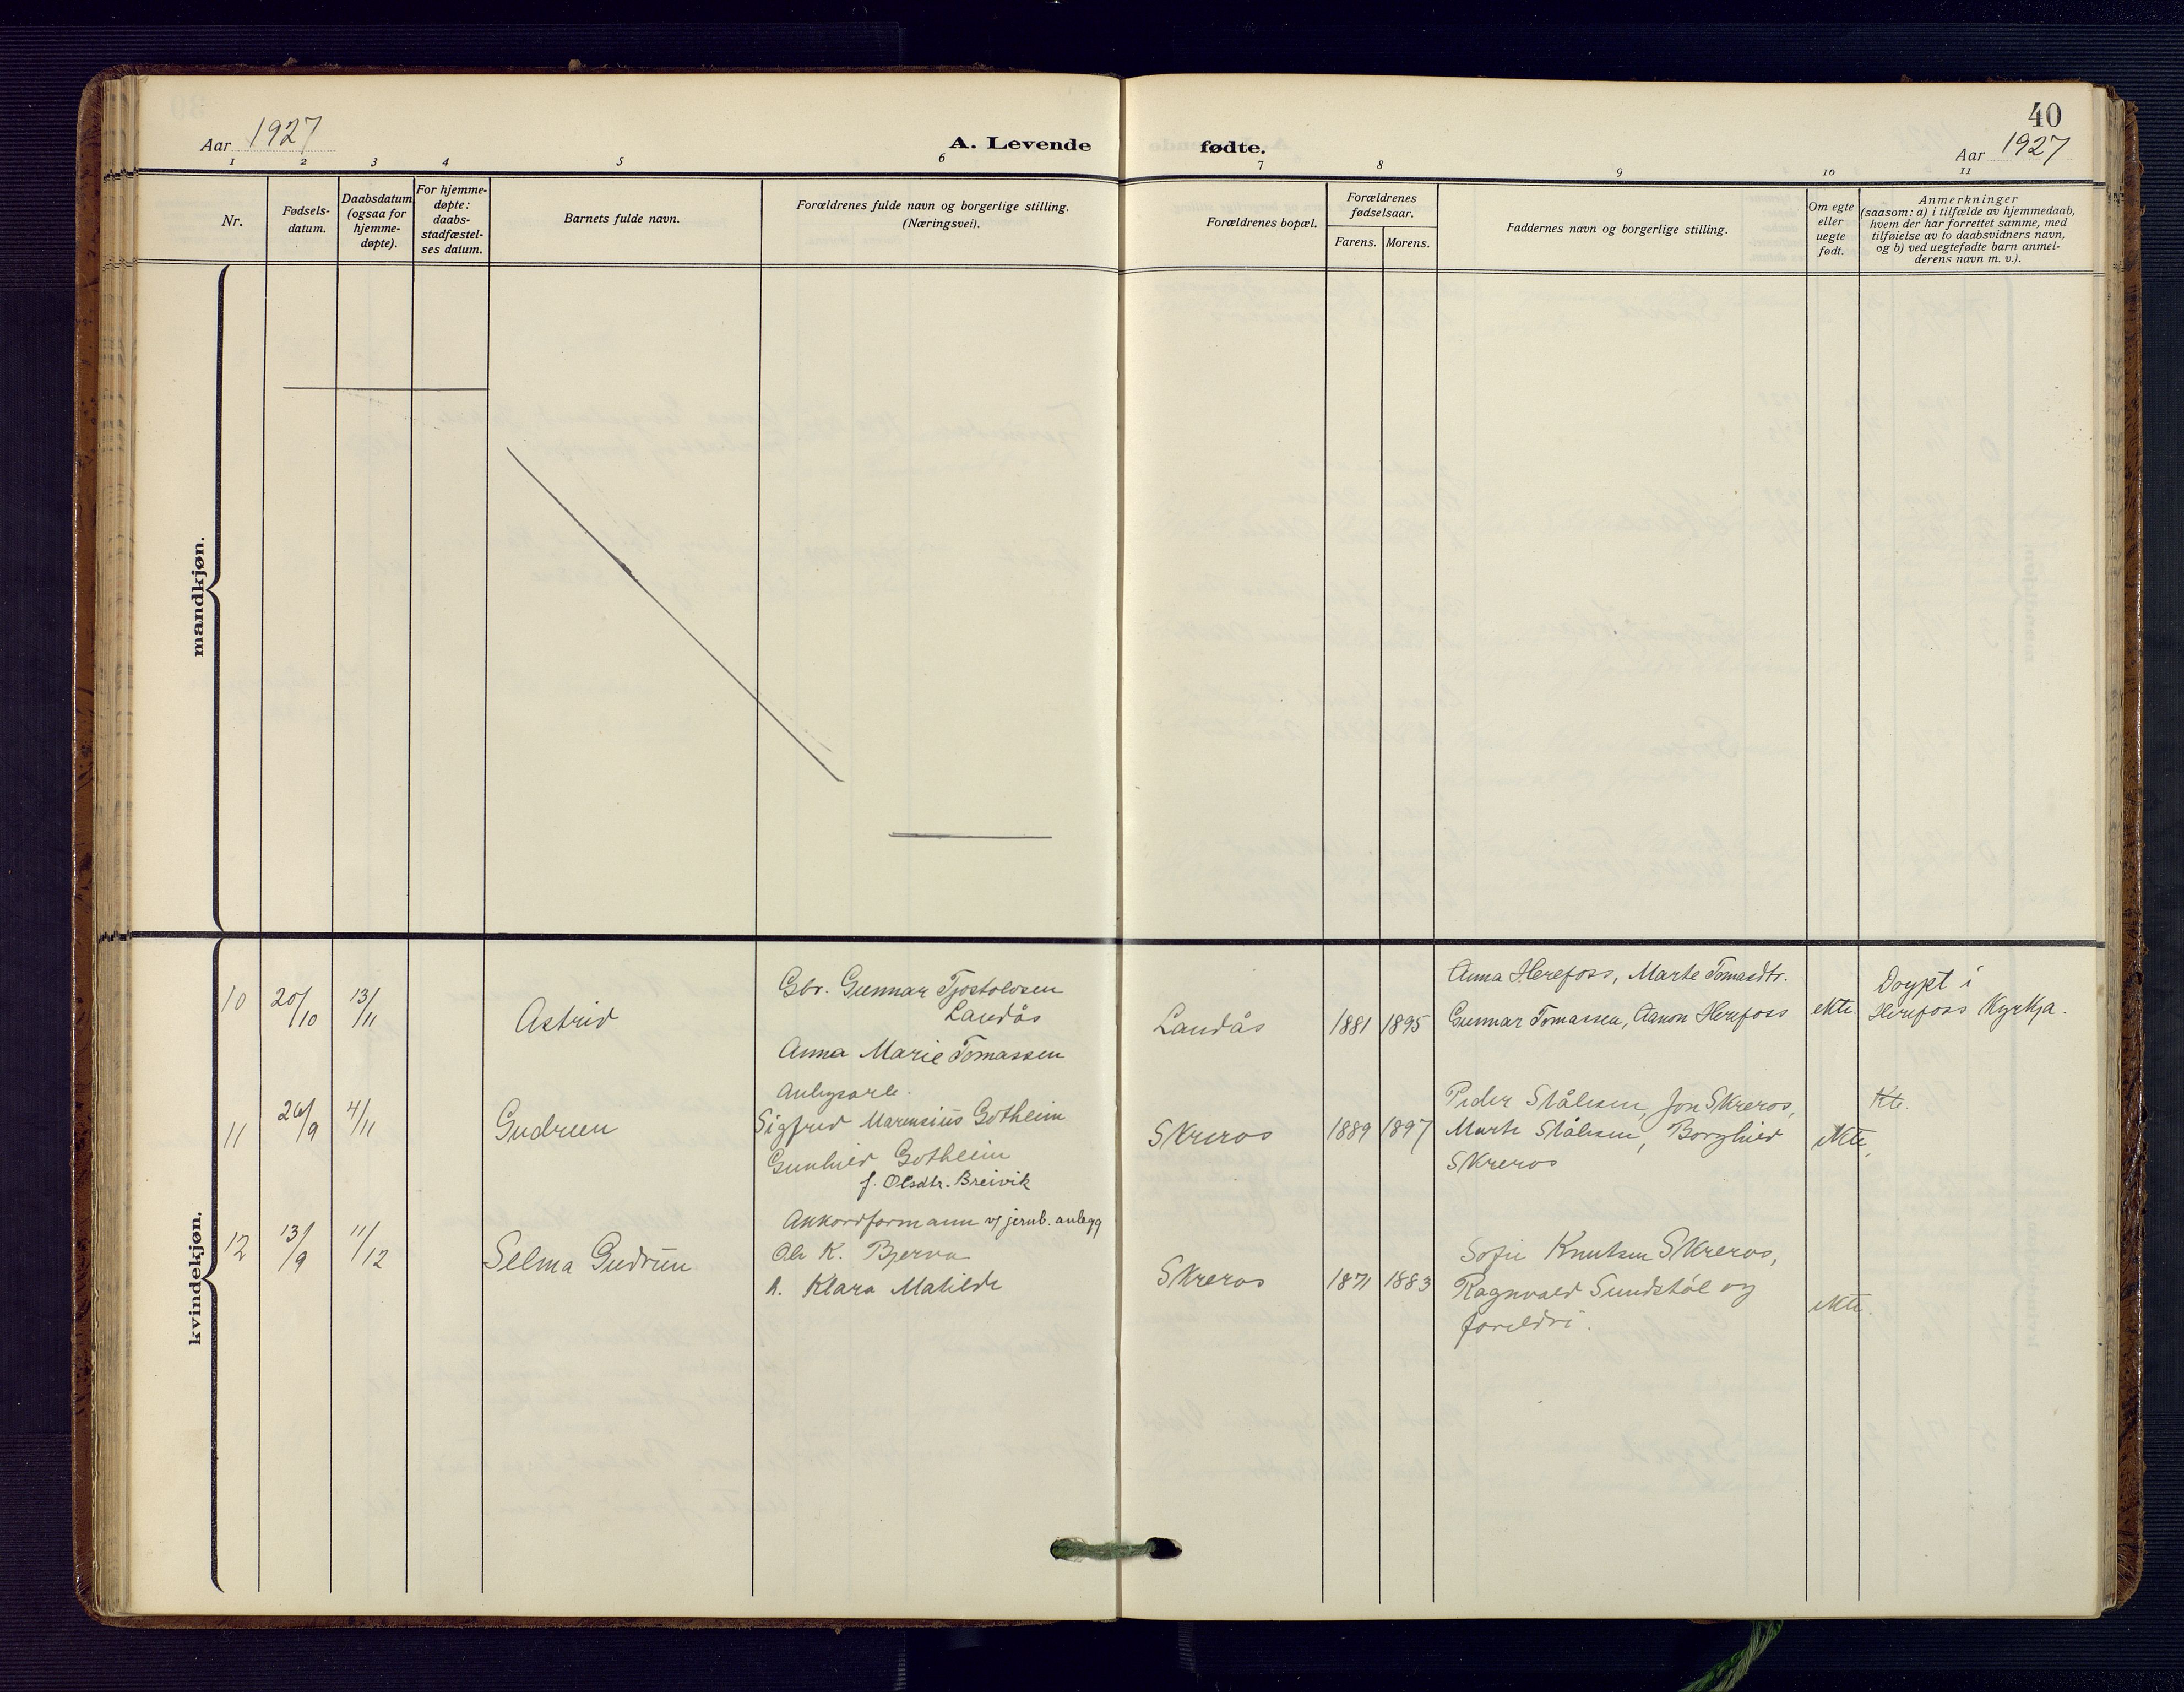 40
Aar 1927
A. Levende fødte.
Aar 1927
1 2 3 4 5 6 7 8 9 10 11
Nr.
Fødsels-
datum.
Daabsdatum
(ogsaa for
hjemme-
døpte).
For hjemme-
døpte:
daabs-
stadfæstel-
ses datum.
Barnets fulde navn.
Forældrenes fulde navn og borgerlige stilling.
(Næringsvei).
Forældrenes bopæl.
Forældrenes
fødselsaar.
Farens. Morens.
Faddernes navn og borgerlige stilling.
Om egte
eller
uegte
født.
Anmerkninger
(saasom: a) i tilfælde av hjemmedaab,
hvem der har forrettet samme, med
tilføielse av to daabsvidners navn,
og b) ved uegtefødte barn anmel-
derens navn m. v.).
mandkjøn.
kvindekjøn.
10
20/10
13/11
Astrid
Gbr. Gunnar Tjostolvsen
Landås
Anna Marie Tomassen
Landås
1881 1895
Anna Herefoss, Marte Tomasdtr.
Gunnar Tomassen, Aanon Herefoss
ekte.
Døypt i
Herefoss Kyrkja.
11
26/9
4/11
Gudrun
Anlegsarb.
Sigfred Marensius Gotheim
Gunhild Gotheim
f. Olsdtr. Breivik
Skreros
1889 1897
Peder Stålesen, Jon Skreros,
Marte Stålesen, Borghild
Skreros
ekte.
Kte.
12
13/9
11/12
Selma Gudrun
Akkordformann v/ jernb. anlegg
Ole K. Bjerva
h. Klara Matilde
Skreros
1871 1883
Sofie Knutsen Skreros,
Ragnvald Sundstøl og
foreldri.
ekte.